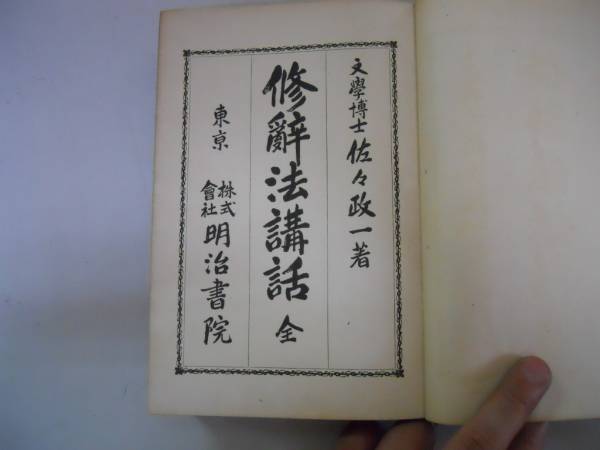 文學博士 佐々政一著
修辭法講話 全
東亰 株式會社 明治書院